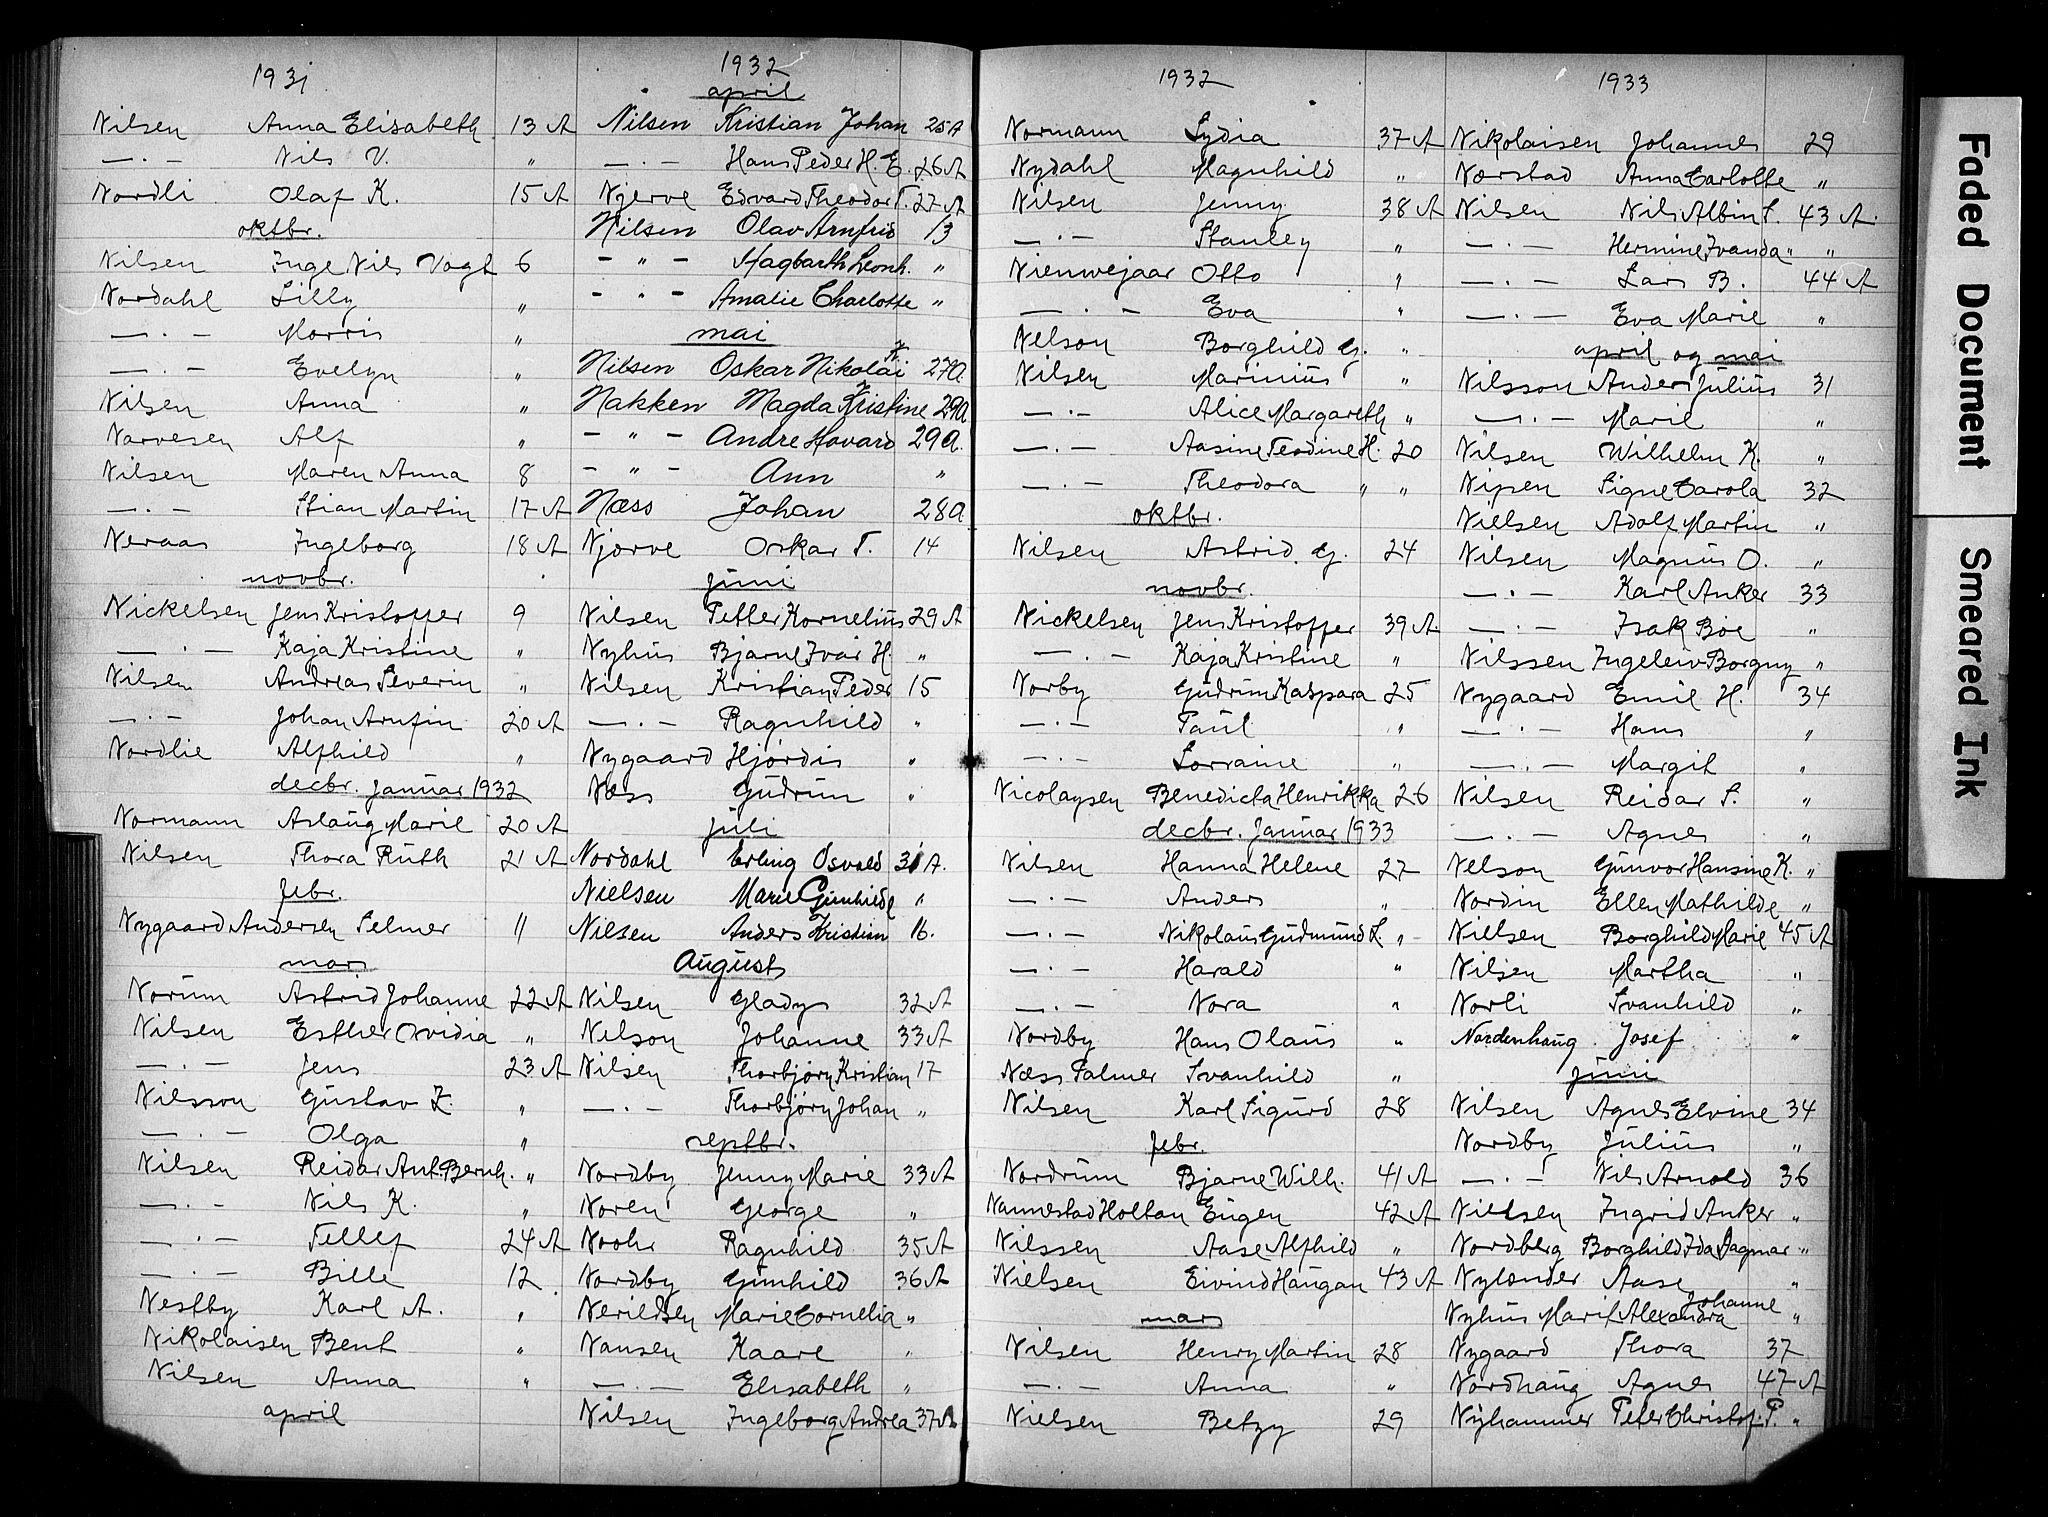 1931
Nilsen Anna Elisabeth 13 A
—·— Nils V. "
Nordli Olaf K. 15 A
oktbr.
Nilsen Inge Nils Vogt 6
Nordahl Lilly "
—·— Morris "
—·— Evelyn "
Nilsen Anna "
Narvesen Alf "
Nilsen Maren Anna 8
—·— Stian Martin 17 A
Neraas Ingeborg 18 A
novbr.
Nickelsen Jens Kristoffer 9
—·— Kaja Kristine "
Nilsen Andreas Severin "
—·— Johan Arnfin 20 A
Nordlie Alfhild "
decbr. Januar 1932
Normann Aslaug Marie 20 A
Nilsen Thora Ruth 21 A
febr.
Nygaard Andersen Selmer 11
mars
Norum Astrid Johanne 22 A
Nilsen Esther Ovidia "
—·— Jens 23 A
Nilsson Gustav Z. "
—·— Olga "
Nilsen Reidar Ant. Bernh. "
—·— Nils K. "
—·— Tellef 24 A
—·— Bille 12
Nestby Karl A. "
Nikolaisen Bent "
Nilsen Anna "
april
1932
april
Nilsen Kristian Johan 25 A
—·— Hans Peder H. E. 26 A
Njerve Edvard Theodor T. 27 A
Nilsen Olav Arnfrid 13
- " - Hagbarth Leonh. "
- " - Amalie Charlotte "
mai
Nilsen Oskar Nikolai K. 27 a.
Nakken Magda Kristine 29 a.
- " - Andre Havard 29 a.
- " - Ann "
Næss Johan 28 a
Njørve Oskar T. 14
juni
Nilsen Petter Kornelius 29 A
Nyhus Bjarne Ivar H. "
Nilsen Kristian Peder 15
—·— Ragnhild "
Nygaard Hjørdis "
Næss Gudrun "
juli
Nordahl Erling Osvald 31 A.
Nielsen Marie Gunhilde "
Nilsen Anders Kristian 16.
August
Nilsen Gladys 32 A
Nelson Johanne 33 A
Nilsen Thorbjørn Kristian 17
—·— Thorbjørn Johan "
septbr.
Nordby Jenny Marie 33 A
Noren George "
Noohr Ragnhild 35 A
Nordby Gunhild 36 A
Nerildsen Marie Cornelia "
Nansen Kaare "
—·— Elisabeth "
Nilsen Ingeborg Andrea 37 A
1932
Normann Lydia 37 A
Nydahl Magnhild "
Nilsen Jenny 38 A
—·— Stanley "
Nienwejaar Otto "
—·— Eva "
Nelson Borghild G. "
Nilsen Marinius "
—·— Alice Margareth "
—·— Aasine Teodine H. 20
—·— Theodora " "
oktbr.
Nilsen Astrid G. 24
novbr.
Nickelsen Jens Kristoffer 39 A.
—·— Kaja Kristine "
Norby Gudrun Kaspara 25
—·— Paul "
—·— Lorraine "
Nicolaysen Benedicta Henrikka 26
decbr. Januar 1933
Nilsen Hanna Helene 27
—·— Anders "
—·— Nikolaus Gudmund L. "
—·— Harald "
—·— Nora "
Nordby Hans Olaus "
Næss Palmer Svanhild "
Nilsen Karl Sigurd 28
febr.
Nordrum Bjarne Wilh. 41 A
Nannestad Holtan Eugen 42 A
Nilssen Aase Alfhild "
Nielsen Eivind Haugan 43 A
mars
Nilsen Henry Martin 28
—·— Anna "
Nielsen Betzy 29
1933
Nikolaisen Johannes 29
Nærstad Anna Carlotte "
Nilsen Nils Albin S. 43 A.
—·— Hermine Ivanda " "
—·— Lars B. 44 A
—·— Eva Marie "
april og mai
Nilsson Anders Julius 31
—·— Marie "
Nilsen Wilhelm K. "
Nipen Signe Carola 32
Nielsen Adolf Martin "
Nilsen Magnus O. "
—·— Karl Anker 33
—·— Isak Boe "
Nilssen Ingeleiv Borgny "
Nygaard Emil H. 34
—·— Hans "
—·— Margit "
Nilsen Reidar S. "
—·— Agnes "
Nelson Gunvor Hansine K. "
Nordin Ellen Mathilde "
Nielsen Borghild Marie 45 A
Nilsen Martha "
Norli Svanhild "
Nordenhaug Josef "
juni
Nilsen Agnes Elvine 34
Nordby Julius "
—·— Nils Arnold 36
Nielsen Ingrid Anker "
Nordberg Borghild Ida Dagmar "
Nylænder Aase "
Nyhus Marit Alexandra Johanne "
Nygaard Thora 37
Nordhaug Agnes 47 A
Nyhammer Peter Christof. P. "
Faded Document
Smeared Ink